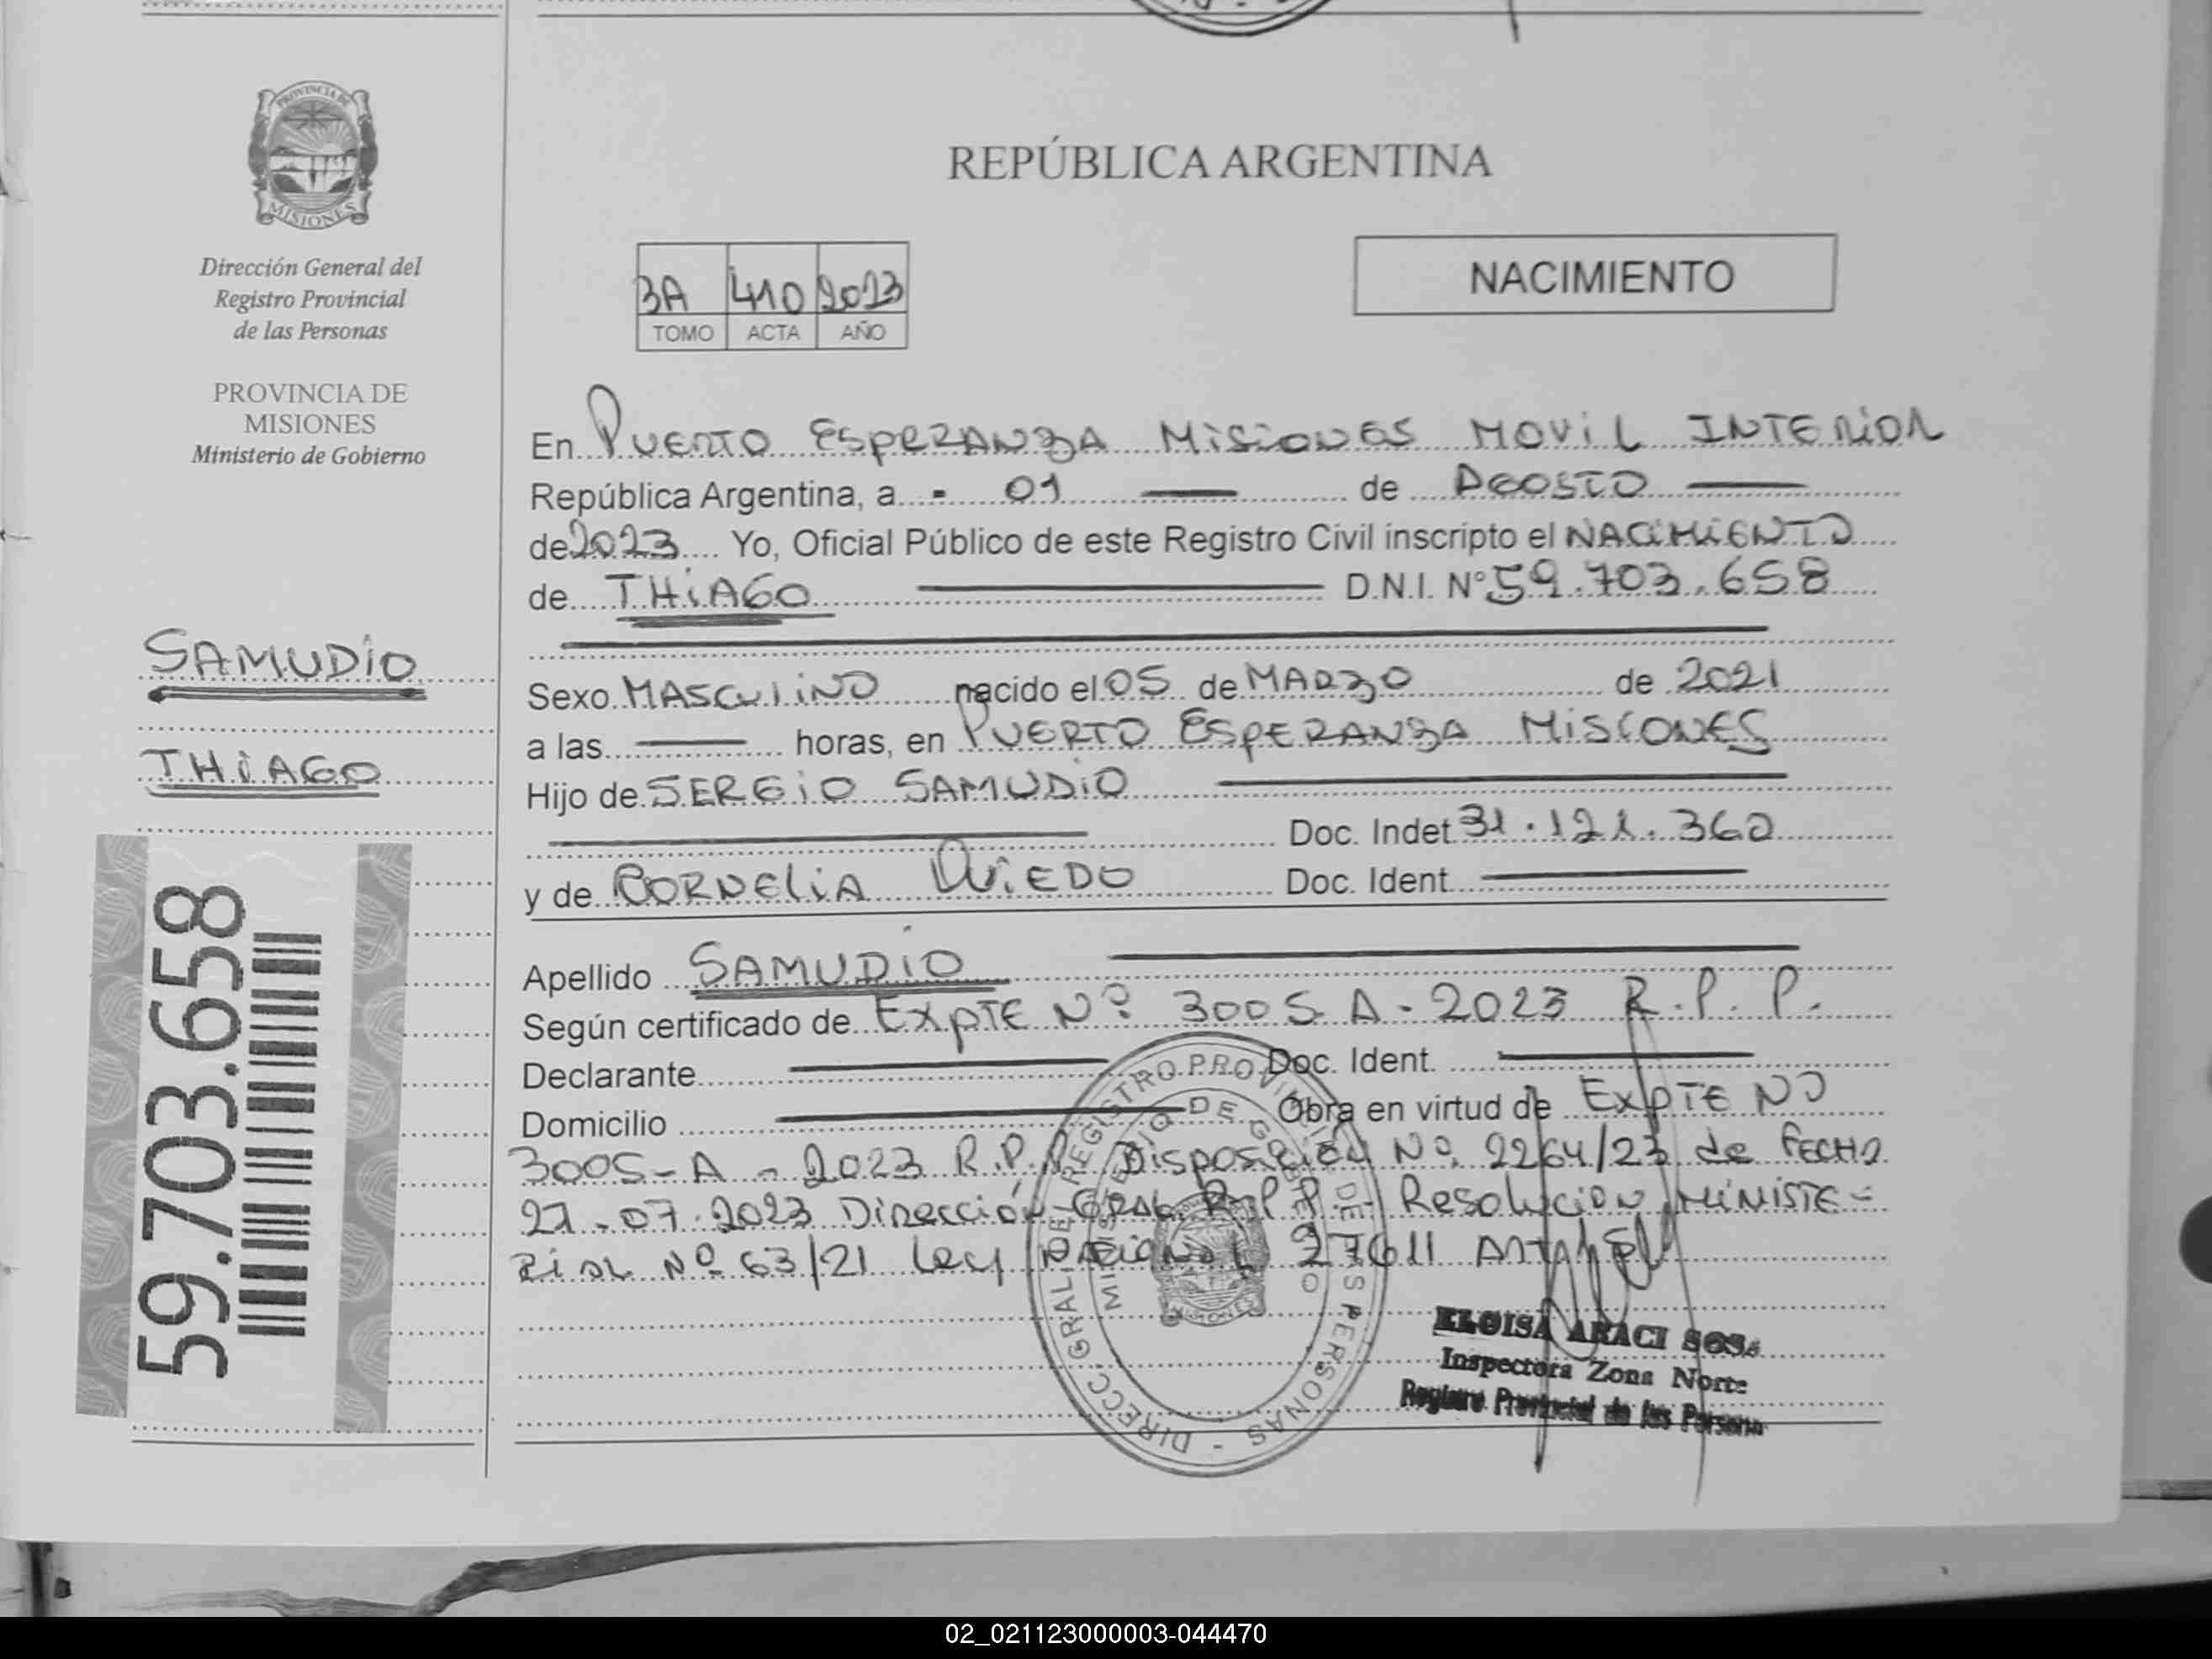 PROVINCIA DE
MISIONES
Dirección General del
Registro Provincial
de las Personas
PROVINCIA DE
MISIONES
Ministerio de Gobierno
SAMUDIO
THIAGO
59.703.658
REPÚBLICA ARGENTINA
NACIMIENTO
3A 410 2023
TOMO ACTA AÑO
En PUERTO ESPERANZA MISIONES MOVIL INTERIOR
República Argentina, a - 01 de AGOSTO
de 2023 Yo, Oficial Público de este Registro Civil inscripto el NACIMIENTO
de THIAGO D.N.I. N° 59.703.658
Sexo MASCULINO nacido el 05 de MARZO de 2021
a las horas, en PUERTO ESPERANZA MISIONES
Hijo de SERGIO SAMUDIO
Doc. Indet. 31.121.360
y de CORNELIA OVIEDO Doc. Ident.
Apellido SAMUDIO
Según certificado de EXPTE Nº 3005 A - 2023 R.P.P.
Declarante Doc. Ident.
Domicilio Obra en virtud de EXPTE Nº
3005-A - 2023 R.P.P. Disposición Nº 2264/23 de FECHA
27-07-2023 Dirección GRAL R.P.P. - Resolucion MINISTE-
RIAL Nº 63/21 Ley Nacional 27611
DIRECC. GRAL. DE REGISTRO PROVINC. DE LAS PERSONAS
MINISTERIO DE GOBIERNO
ELOISA ARACI SOSA
Inspectora Zona Norte
Registro Provincial de las Personas
02_021123000003-044470